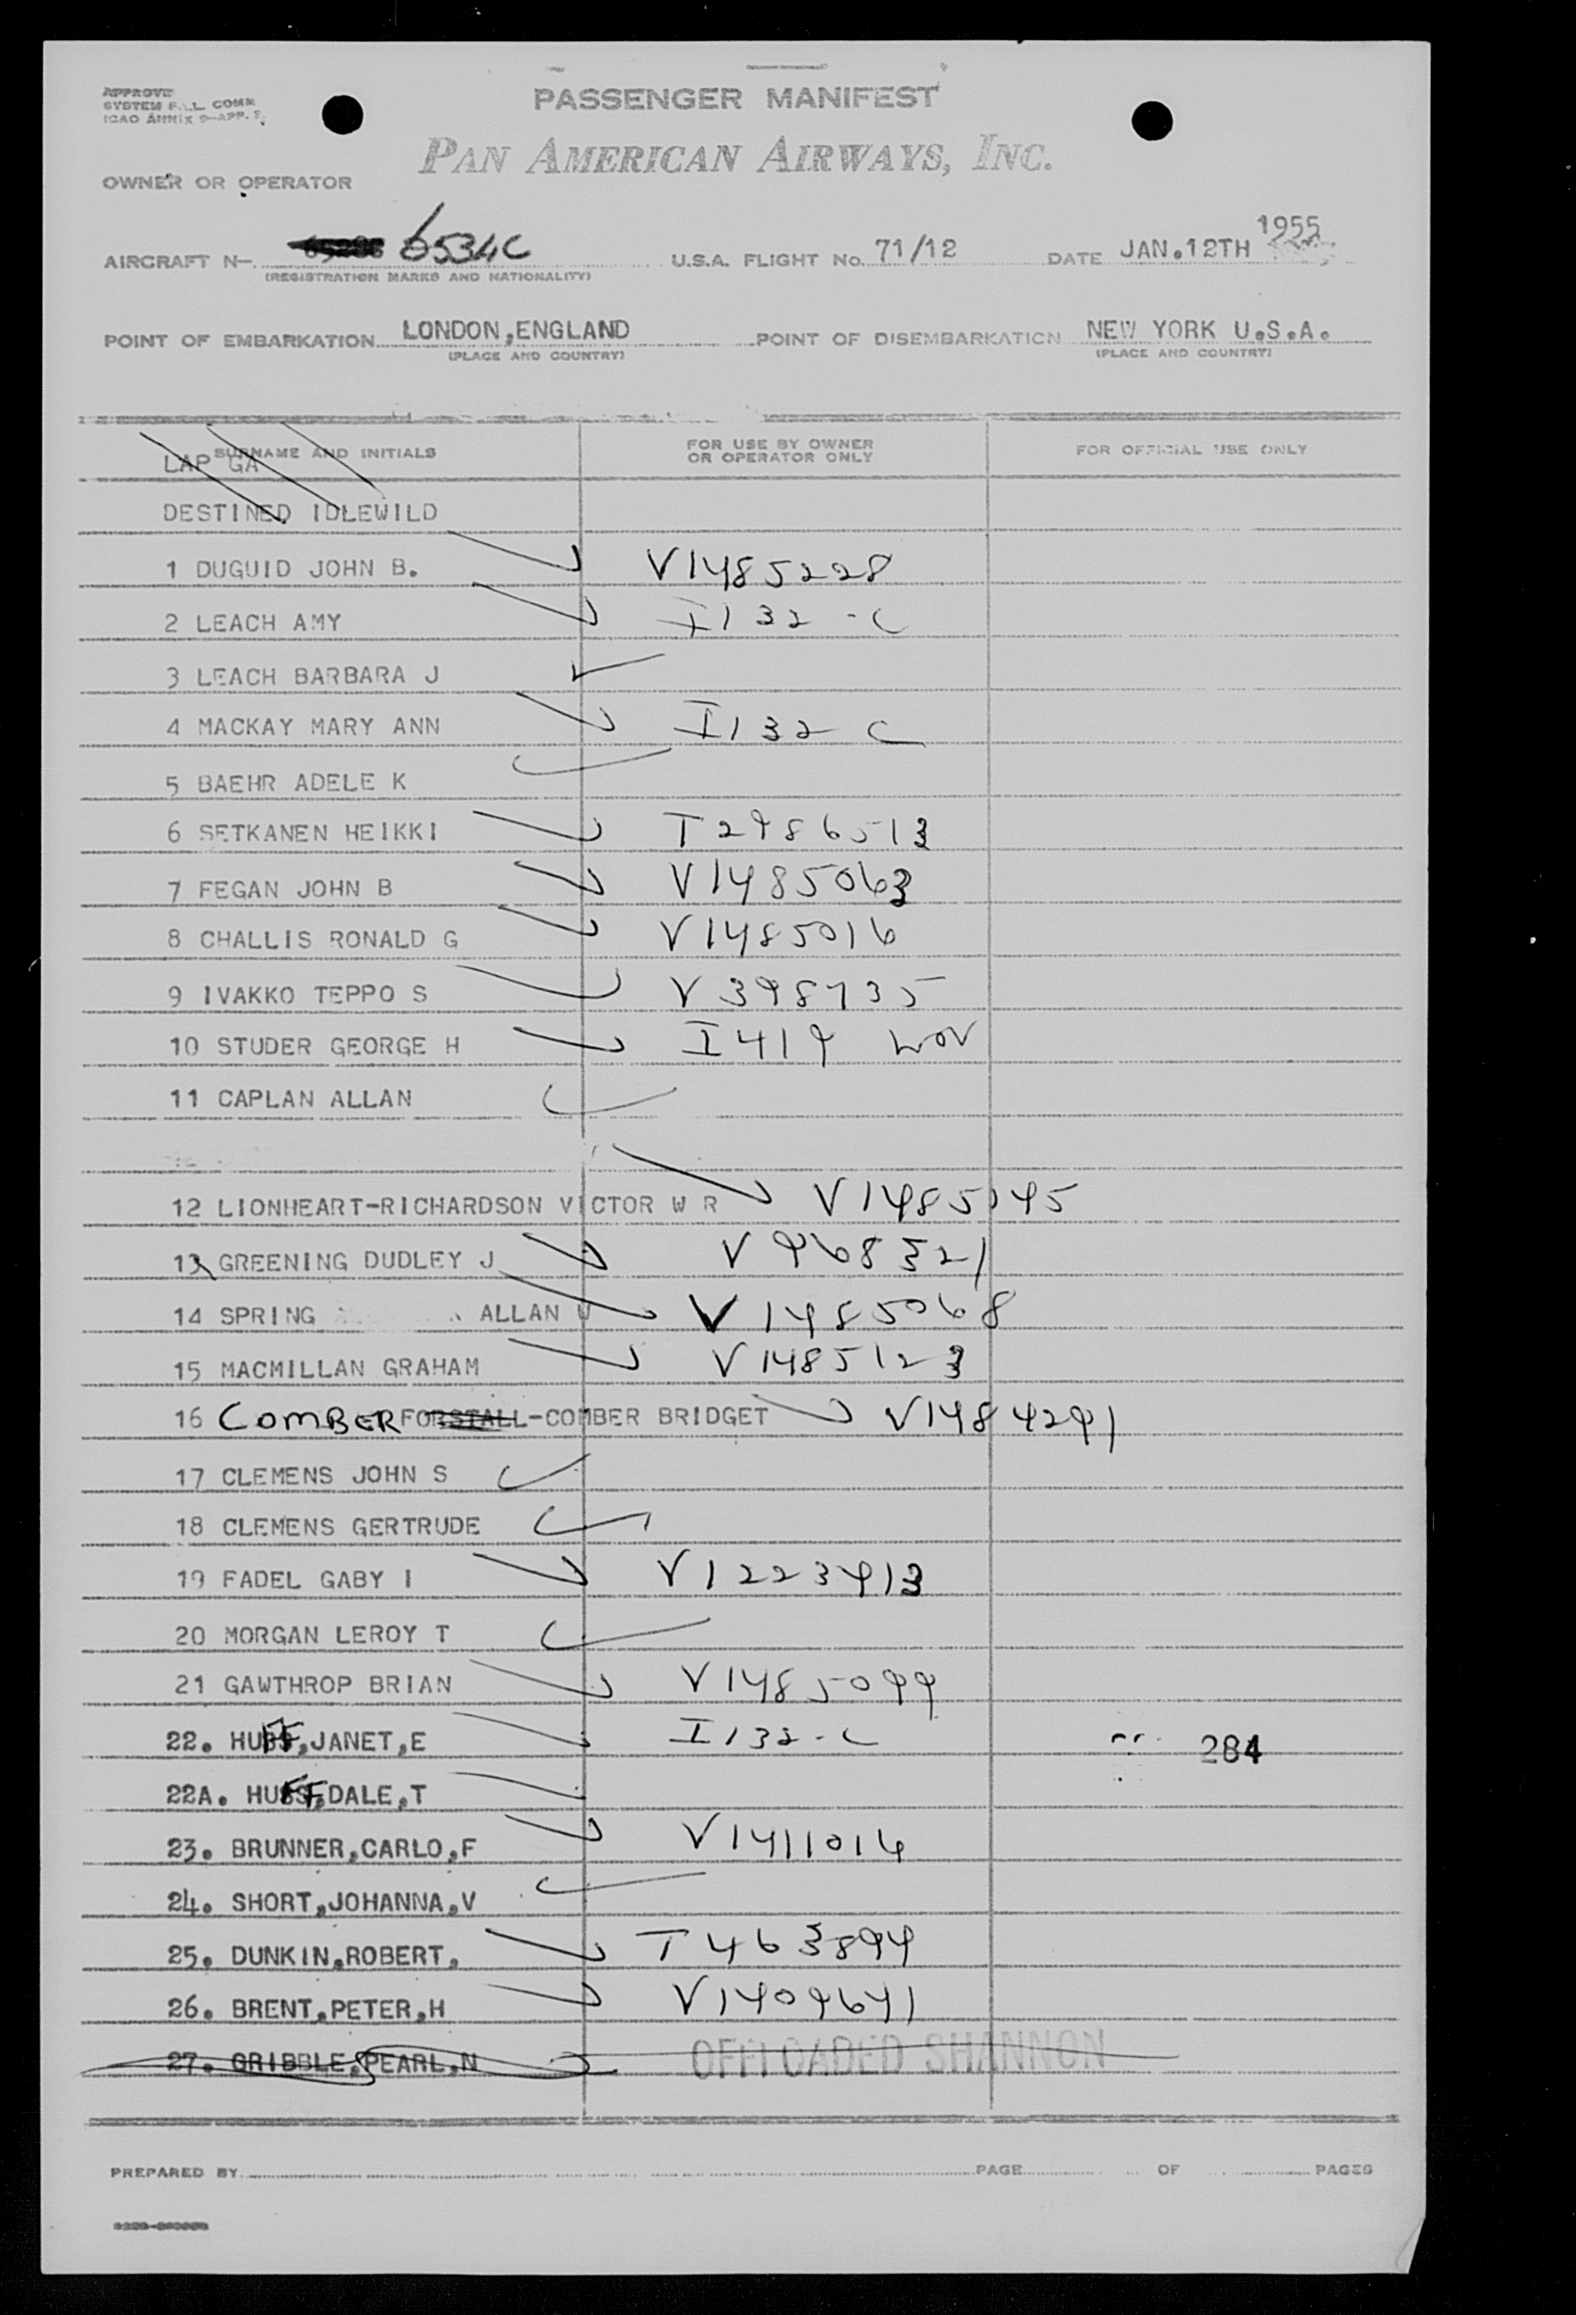 PASSENGER MANIFEST
PAN AMERICAN AIRWAYS, INC.
OWNER OR OPERATOR
AIRCRAFT N- 6534C U.S.A. FLIGHT No. 71/12 DATE JAN.12TH 1955
(REGISTRATION MARKS AND NATIONALITY)
POINT OF EMBARKATION LONDON,ENGLAND POINT OF DISEMBARKATION NEW YORK U.S.A.
(PLACE AND COUNTRY) (PLACE AND COUNTRY)
SURNAME AND INITIALS FOR USE BY OWNER OR OPERATOR ONLY FOR OFFICIAL USE ONLY
LAP GA
DESTINED IDLEWILD
1 DUGUID JOHN B. V1485228
2 LEACH AMY I132-C
3 LEACH BARBARA J
4 MACKAY MARY ANN I132 C
5 BAEHR ADELE K
6 SETKANEN HEIKKI T2986513
7 FEGAN JOHN B V1485063
8 CHALLIS RONALD G V1485016
9 IVAKKO TEPPO S V398735
10 STUDER GEORGE H I419 WOV
11 CAPLAN ALLAN
12 LIONHEART-RICHARDSON VICTOR W R V1485145
13 GREENING DUDLEY J V968321
14 SPRING ALLAN W V1485068
15 MACMILLAN GRAHAM V1485123
16 COMBER FORSTALL-COMBER BRIDGET V1484291
17 CLEMENS JOHN S
18 CLEMENS GERTRUDE
19 FADEL GABY I V1223913
20 MORGAN LEROY T
21 GAWTHROP BRIAN V1485099
22. HUFF,JANET,E I132-C 284
22A. HUFF,DALE,T
23. BRUNNER,CARLO,F V1411016
24. SHORT,JOHANNA,V
25. DUNKIN,ROBERT, T463894
26. BRENT,PETER,H V1409641
27. GRIBBLE,PEARL,N OFFLOADED SHANNON
PREPARED BY PAGE OF PAGES